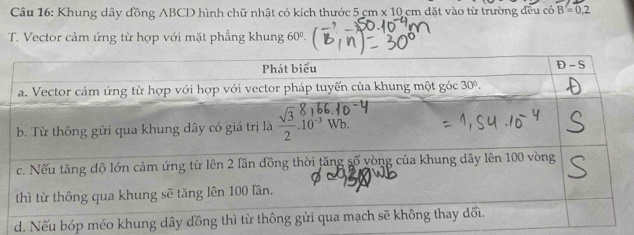 Câu 16: Khung dây đồng ABCD hình chữ nhật có kích thước 5 cm x 10 cm đặt vào từ trường đều có B = 0,2
50.10⁻⁴m
T. Vector cảm ứng từ hợp với mặt phẳng khung 60⁰. (B⃗, n⃗) = 30⁰
Phát biểu Đ – S
a. Vector cảm ứng từ hợp với hợp với vector pháp tuyến của khung một góc 30⁰. Đ
8,66.10⁻⁴
b. Từ thông gửi qua khung dây có giá trị là √3/2 .10⁻³ Wb. = 1,54.10⁻⁴ S
c. Nếu tăng độ lớn cảm ứng từ lên 2 lần đồng thời tăng số vòng của khung dây lên 100 vòng S
thì từ thông qua khung sẽ tăng lên 100 lần.
d. Nếu bóp méo khung dây đồng thì từ thông gửi qua mạch sẽ không thay đổi.